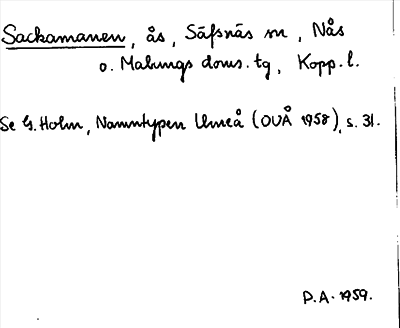 Sackamanen, ås, Säfsnäs sn, Nås
o. Malungs doms. tg, Kopp. l.
Se G. Holm, Namntypen Umeå (OUÅ 1958), s. 31.
P.A. 1959.